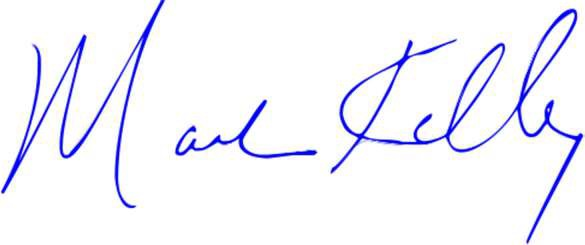 Mark Kelly